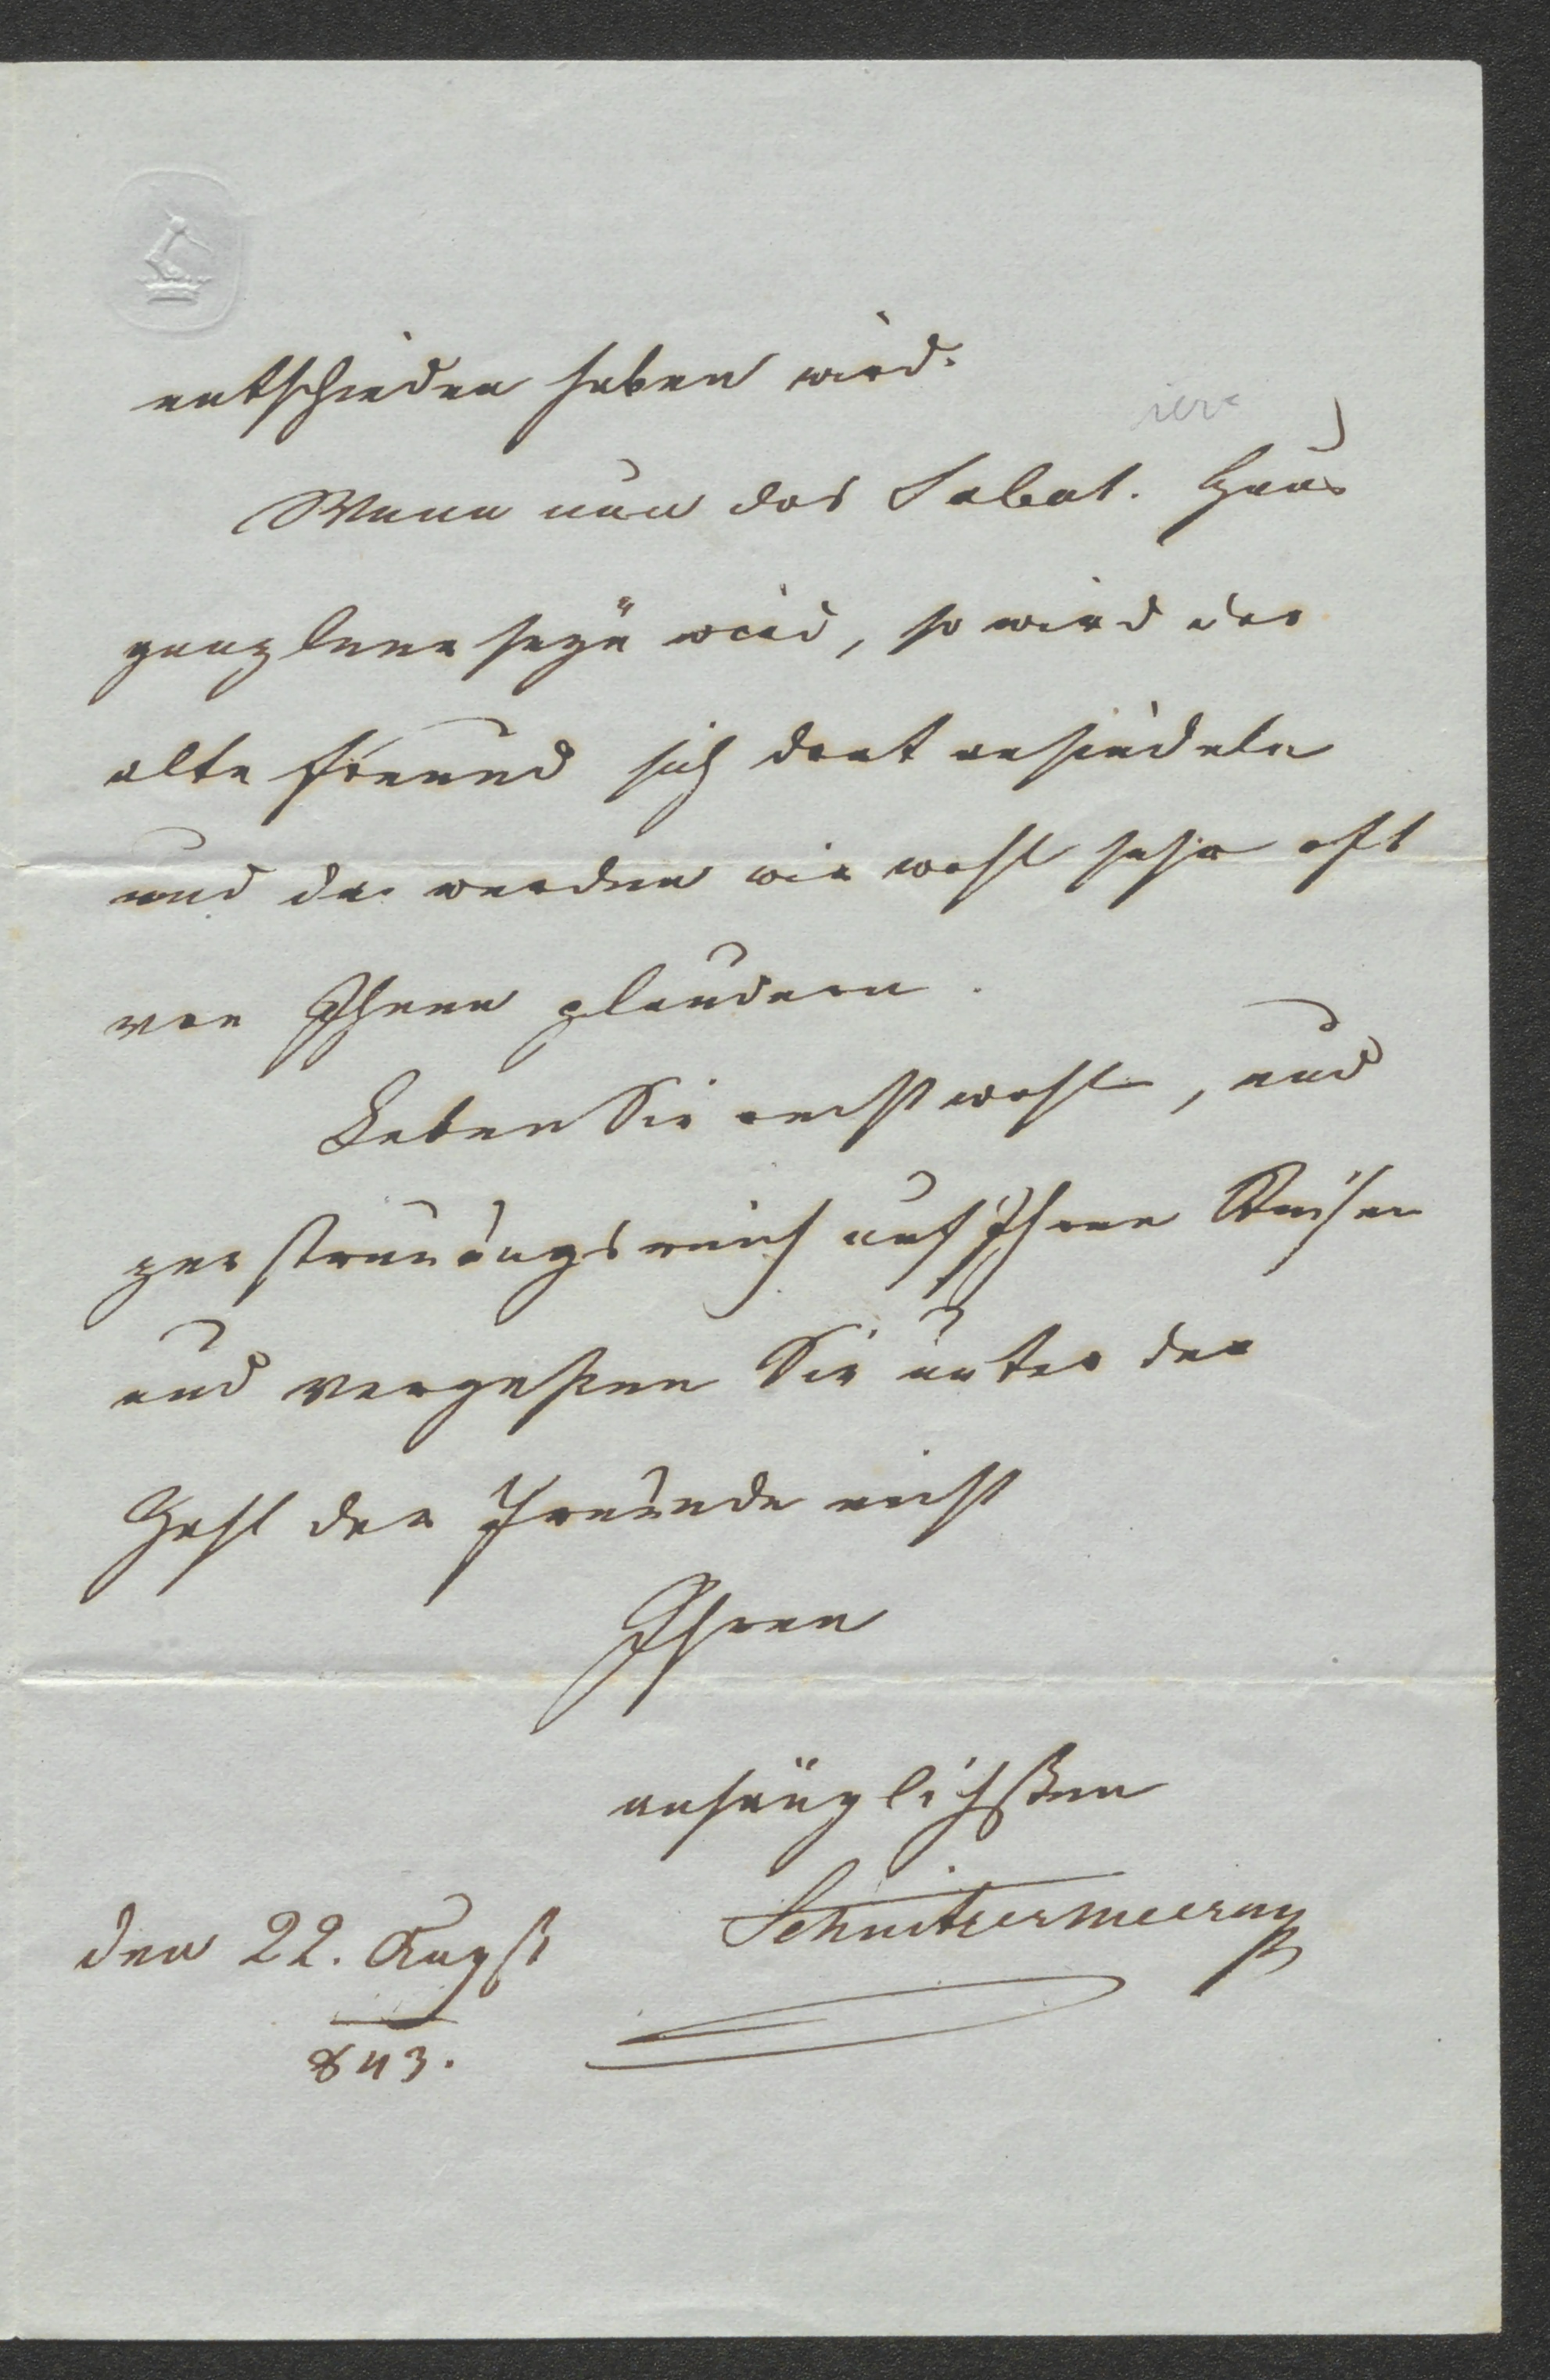 entschieden haben wird.
Wenn nun das Labat. Haus
ganz leer seyn wird, so wird der
alte Freund sich dort ansiedeln
und da werden wir wohl sehr oft
von Ihnen plaudern.
Leben Sie recht wohl, und
zerstreuungsreich auf Ihren Reisen
und vergeßen Sie unter der
Zahl der Freunde nicht
Ihren
anhänglichsten
den 22. Augst
843.